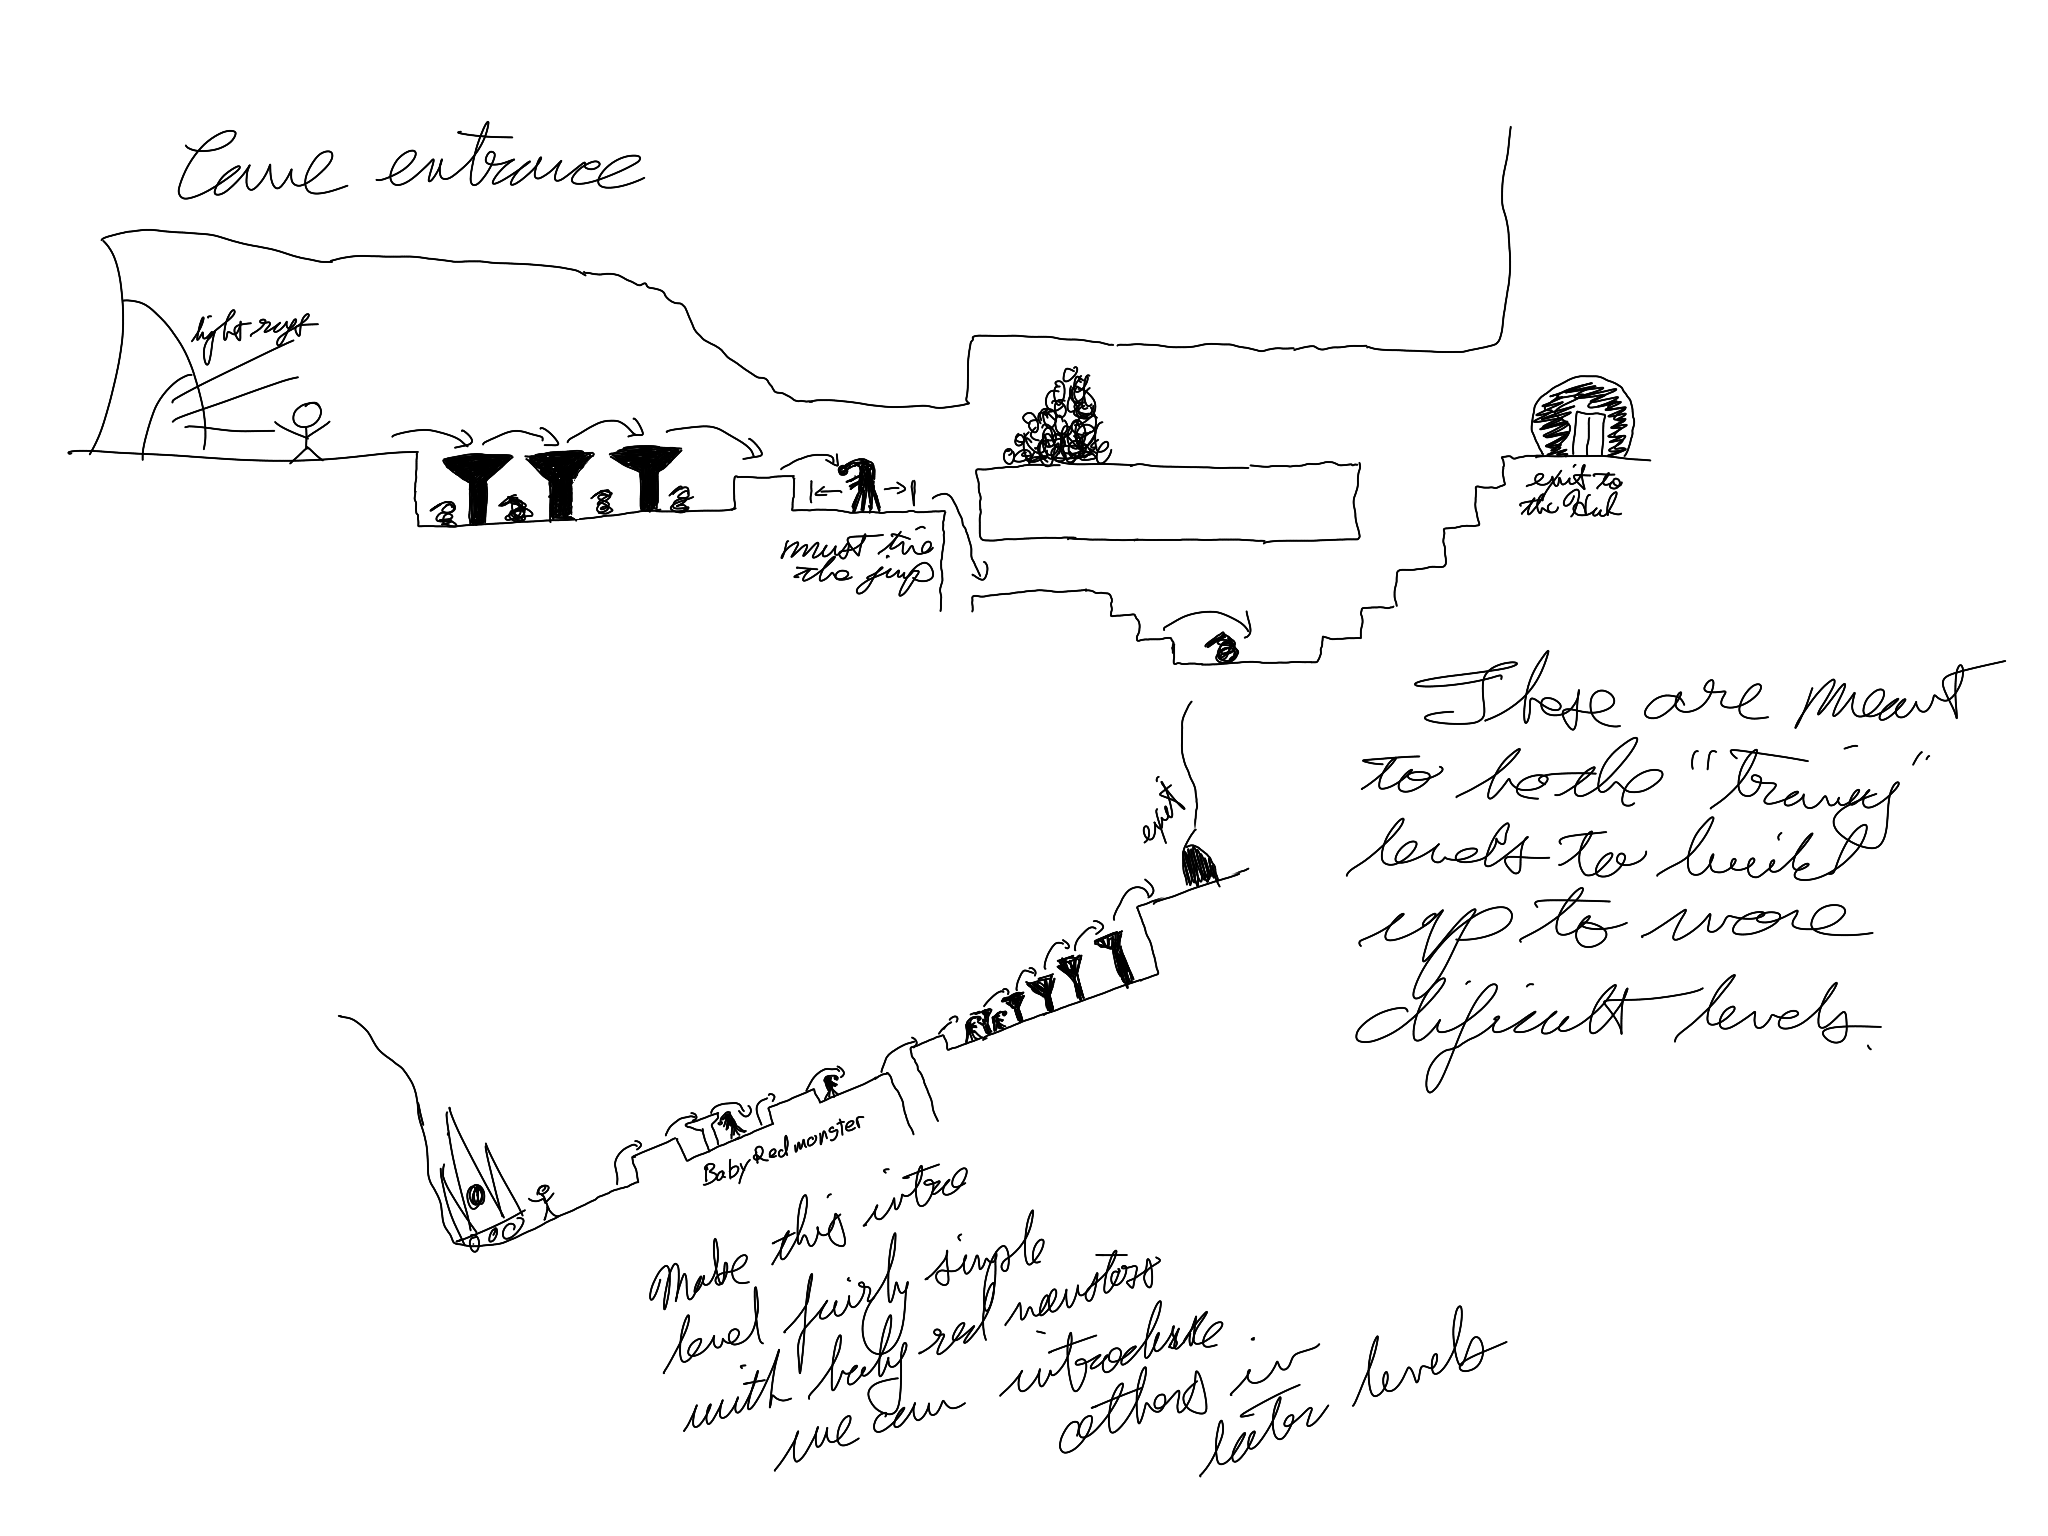 Cave entrance
light rays
must time
the jump
exit to
the Hub
These are meant
to be the "training"
levels to build
up to more
dificult levels.
exit
Baby Red monster
Make this intro
level fairly simple
with baby red monsters
we can introduce
others in
later levels